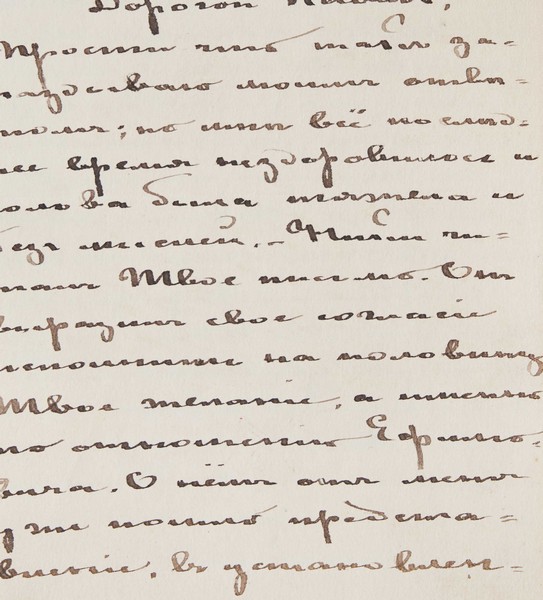 Дорогой
Прости что такъ за-
аздываю моимъ отвѣ-
но мнѣ всё послѣд-
ее время нездоровилось и
олова была тяжела и
безъ мыслей. Читалъ
Твое письмо. Онъ
выразилъ свое согласіе
исполнить на половину
Твое желаніе, а именно
по отношенію
О нёмъ отъ меня
уже пошло предста-
вленіе, въ установлен-